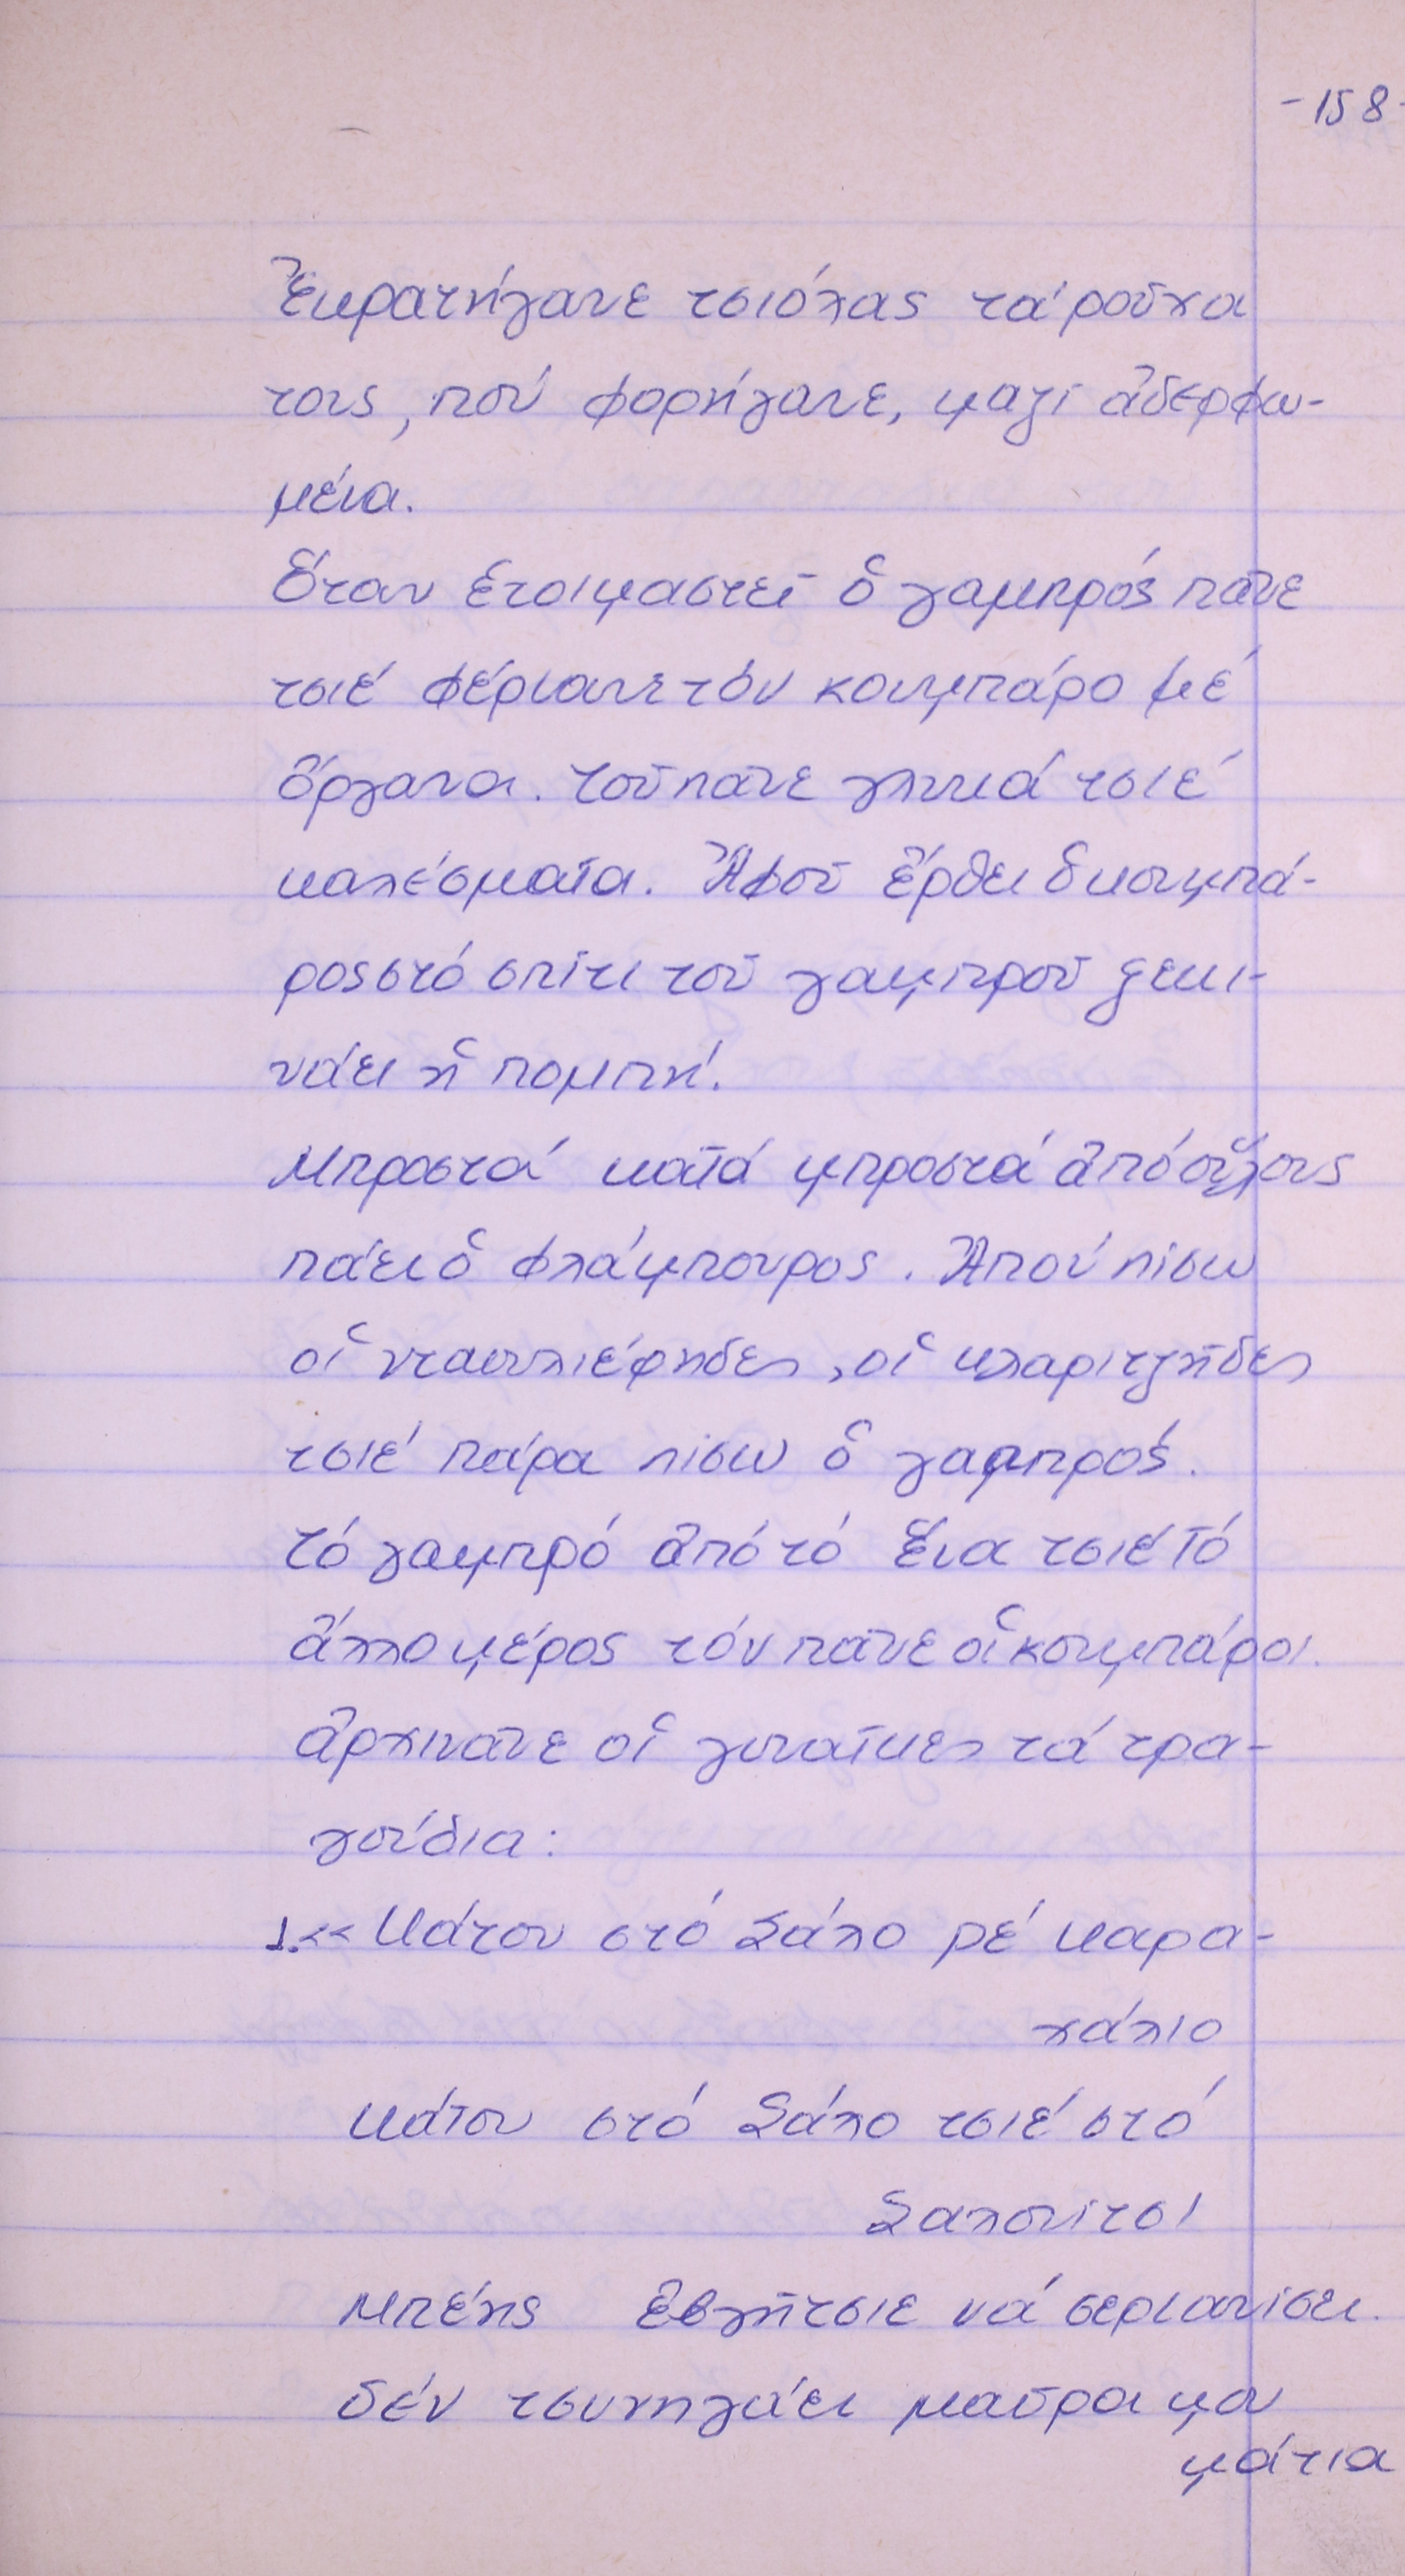 -158-
Ἐκρατήγανε τσιόλας τά ροῦχα
τους, πού φορήγανε, μαζί ἀδερφω-
μένα.
Ὅταν ἑτοιμαστεῖ ὁ γαμπρός πᾶνε
τσιέ φέρνανε τόν κουμπάρο μέ
ὄργανα. τοῦ πᾶνε γλυκά τσιέ
καλέσματα. Ἀφοῦ ἔρθει ὁ κουμπά-
ρος στό σπίτι τοῦ γαμπροῦ ξεκι-
νάει ἡ πομπή.
Μπροστά κατά μπροστά ἀπό οὕλους
πάει ὁ φλάμπουρος. Ἀπού πίσω
οἱ νταουλιέρηδες, οἱ κλαριτζῆδες
τσιέ πάρα πίσω ὁ γαμπρός.
τό γαμπρό ἀπό τό ἕνα τσιέ τό
ἄλλο μέρος τόν πᾶνε οἱ κουμπάροι.
ἀρχινᾶνε οἱ γυναῖκες τά τρα-
γούδια:
1.<< Κάτου στό Σάλο ρέ καρα-
χάλιο
κάτου στό Σάλο τσιέ στό
Σαλονίτσι
Μπέης ἐβγῆτσιε νά σεριανίσει.
δέν τσυνηγάει μαῦρα μου
μάτια